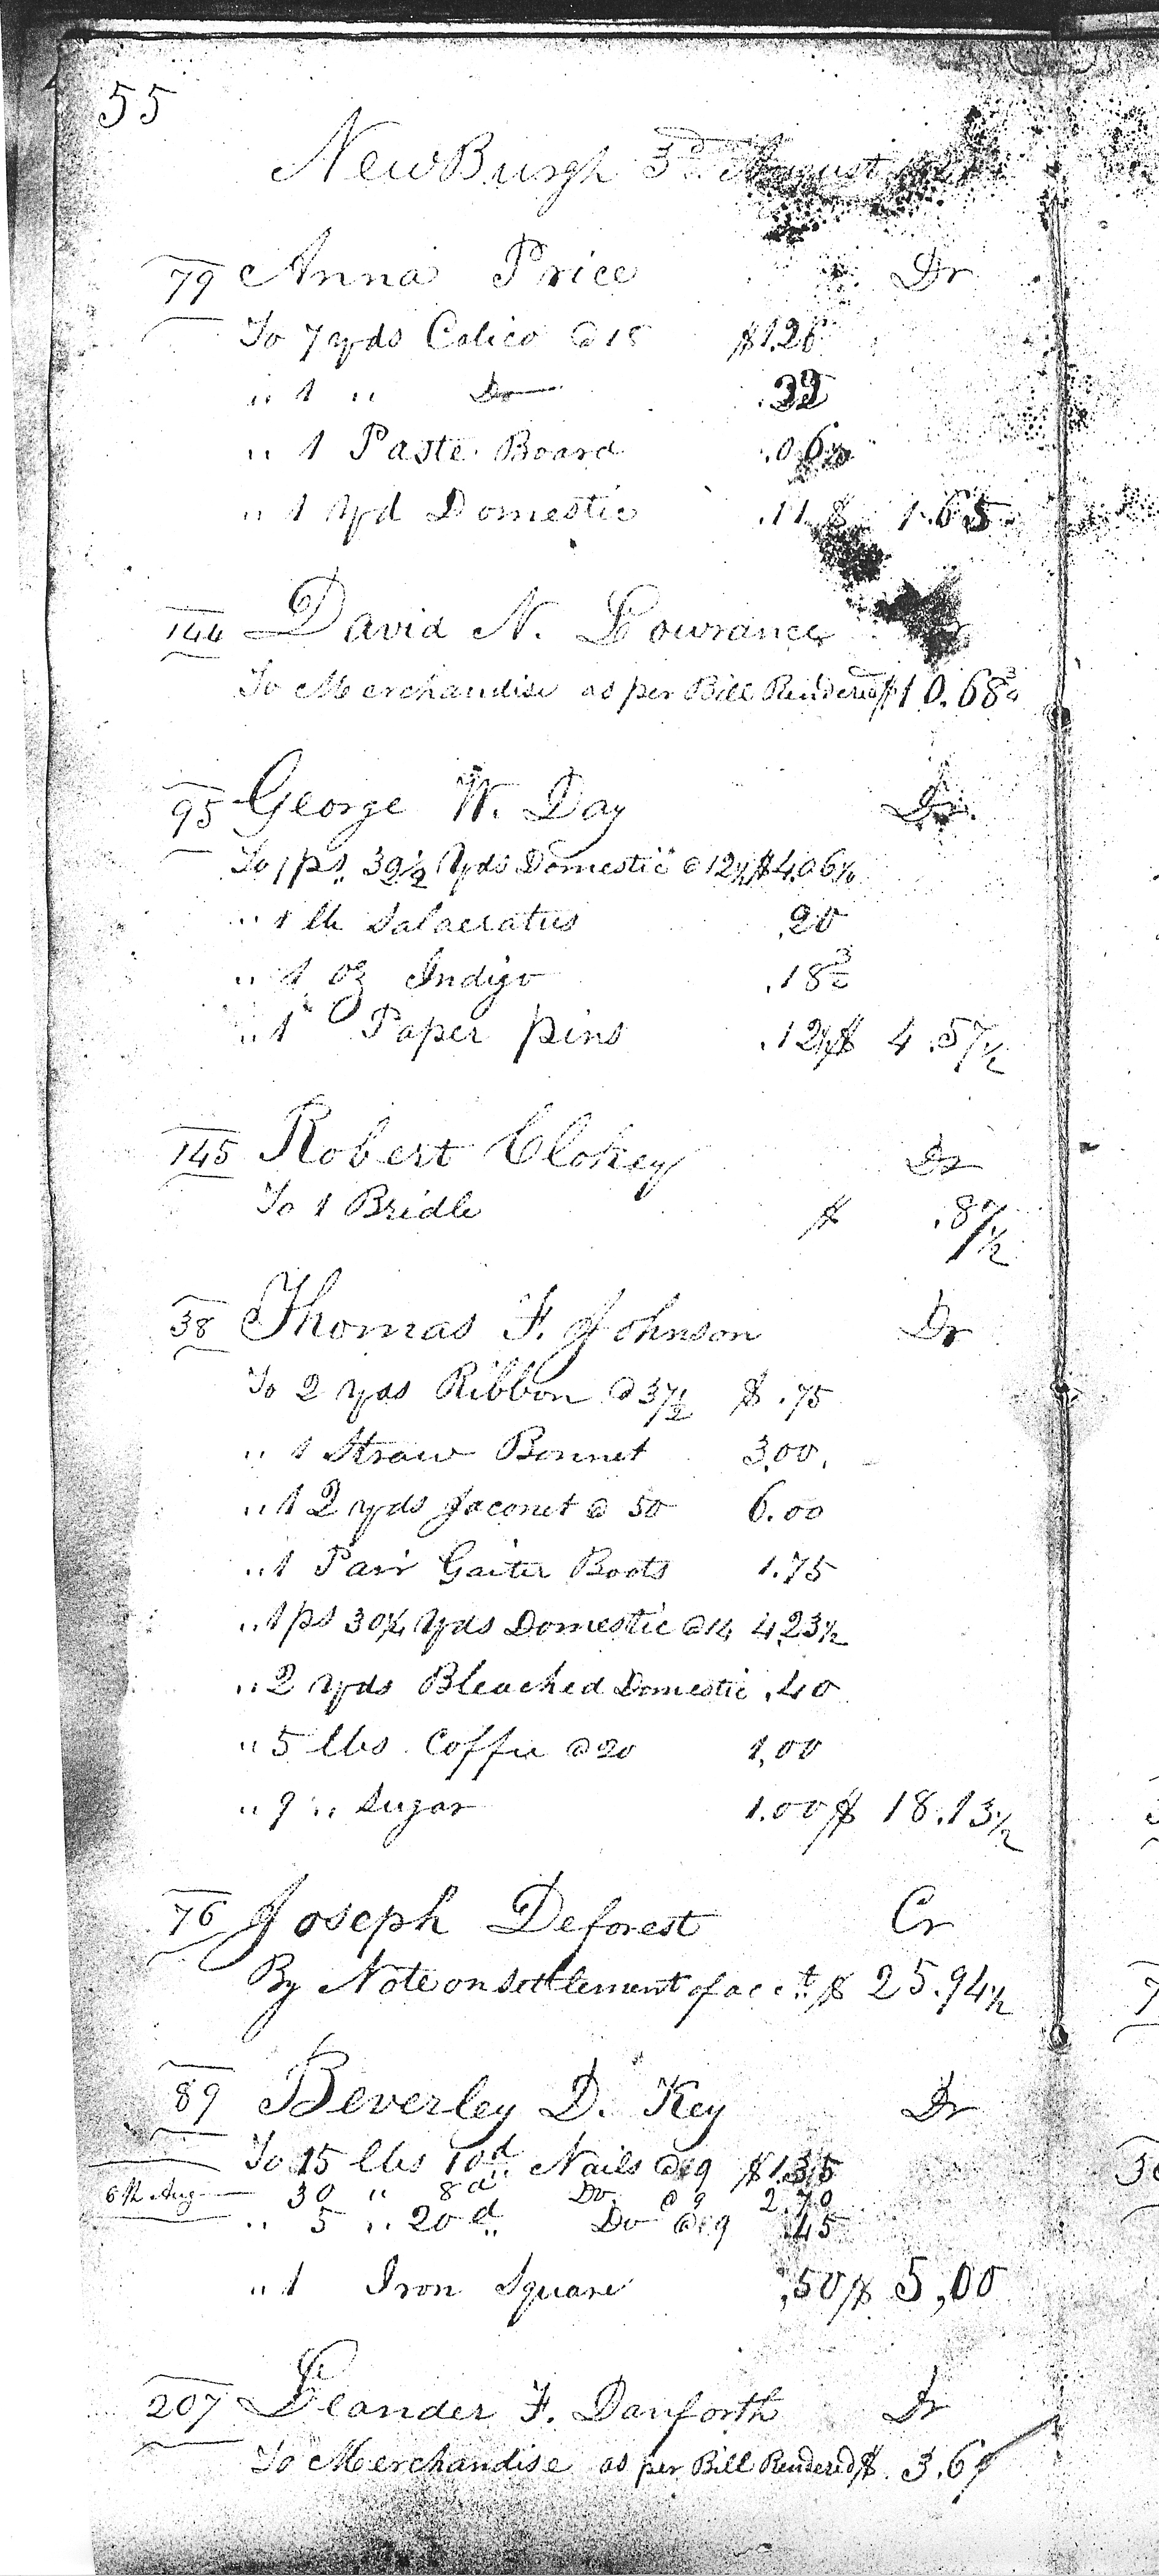 55
NewBurgh 3d August
79 Anna Price Dr
To 7 yds Calico @ 18 $1.26
" 1 " Do .22
" 1 Paste Board .06¼
" 1 yd Domestic .11 $ 1.65
144 David N. Lowrance
To Merchandise as per Bill Rendered $10.68¾
95 George W. Day Dr
To 1 ps. 32½ Yds Domestic @ 12½ $4.06½
" 1 lb Salaeratus .20
" 1 oz Indigo .18¾
" 1 Paper pins .12½ $ 4.57½
145 Robert Clokey Dr
To 1 Bridle $ .87½
38 Thomas F. Johnson Dr
To 2 yds Ribbon @ 37½ $ .75
" 1 Straw Bonnet 3.00
" 12 yds Jaconet @ 50 6.00
" 1 Pair Gaiter Boots 1.75
" 1 ps 30¼ Yds Domestic @ 14 4.23½
" 2 Yds Bleached Domestic .40
" 5 lbs Coffee @ 20 1.00
" 9 " Sugar 1.00 $ 18.13½
76 Joseph Deforest Cr
By Note on settlement of acct $ 25.94½
89 Beverley D. Key Dr
To 15 lbs 10d Nails @ 9 $1.35
6th Aug 30 " 8d Do @ 9 2.70
" 5 " 20d Do @ 9 .45
" 1 Iron Square .50 $ 5,00
207 Leander F. Danforth Dr
To Merchandise as per Bill Rendered $ 3.61